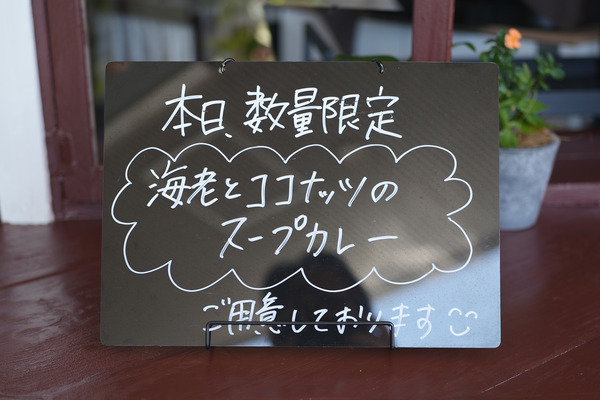 本日、数量限定
海老とココナッツの
スープカレー
ご用意しております